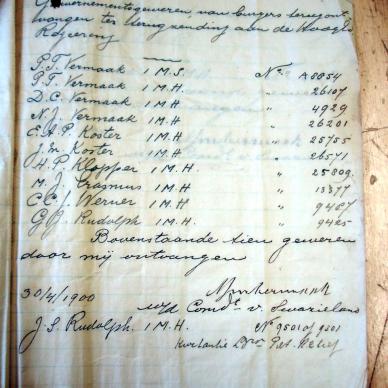 Gouvernementsgeweren van burgers terug ont
vangen ter terugzending aan de Hooge
Regeering
P.T. Vermaak 1 M.S. No A8054
P.T. Vermaak 1 M.H. " 26107
D.C. Vermaak 1 M.H " 4929
N.J. Vermaak 1 M.H " 26201
C.A.P. Koster 1 M.H " 25755
J.M. Koster 1 M.H " 26571
H.P. Klopper 1 M.H. " 25809
M.J. Erasmus 1 M.H " 13377
C.C.J. Werner 1 M.H " 9487
G.J. Rudolph 1 M.H " 9425
Bovenstaande tien geweren
door mij ontvangen
30/4/1900
w/d Comdt v.
J.S. Rudolph. 1 M.H. No 9501 of 9201
Piet Relief